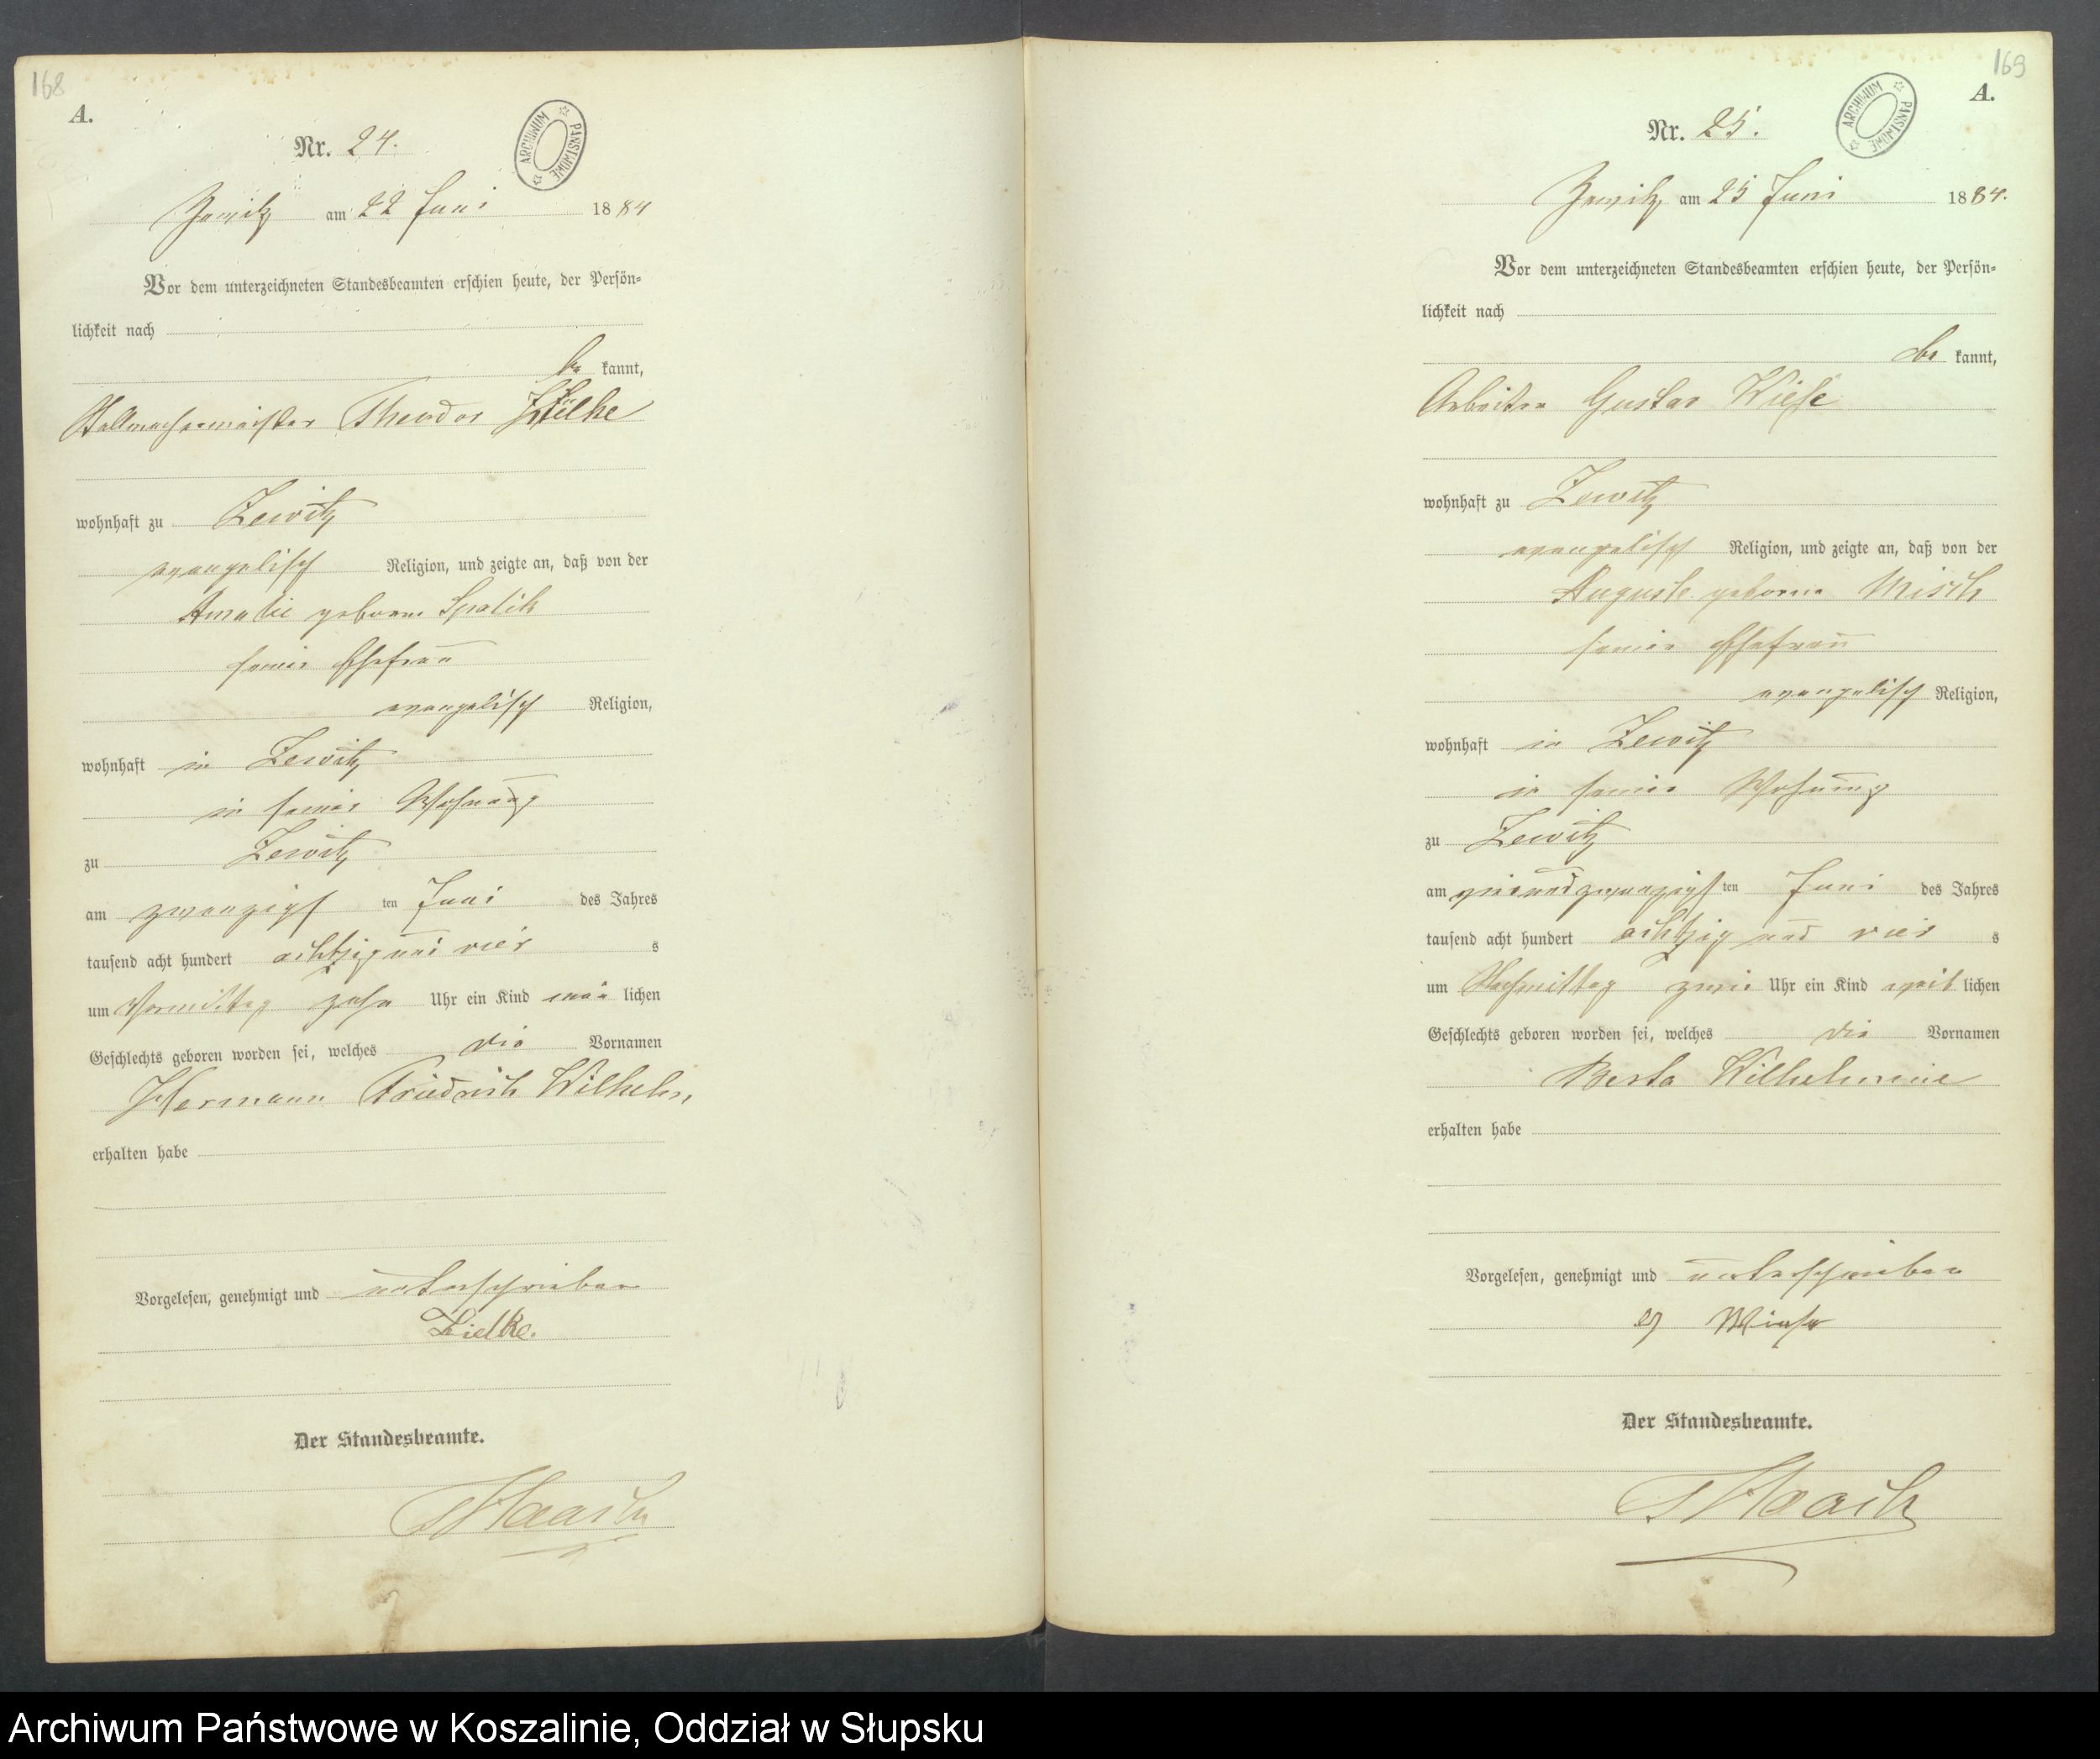 168
A.
Nr. 24.
ARCHIWUM PAŃSTWOWE
Zewitz am 22 Juni 1884
Vor dem unterzeichneten Standesbeamten erschien heute, der Persön-
lichkeit nach
be kannt,
Stellmachermeister Theodor Zielke
wohnhaft zu Zewitz
evangelisch Religion, und zeigte an, daß von der
Amalie geborne
seiner Ehefrau
evangelisch Religion,
wohnhaft in Zewitz
in seiner Wohnung
zu Zewitz
am zwanzigst ten Juni des Jahres
tausend acht hundert achtzig und vier s
um Vormittag zehn Uhr ein Kind männ lichen
Geschlechts geboren worden sei, welches die Vornamen
Hermann Friedrich Wilhelm
erhalten habe
Vorgelesen, genehmigt und unterschrieben
Zielke.
Der Standesbeamte.
169
A.
Nr. 25.
ARCHIWUM PAŃSTWOWE
Zewitz am 25 Juni 1884.
Vor dem unterzeichneten Standesbeamten erschien heute, der Persön-
lichkeit nach
be kannt,
Arbeiter Gustav Wiese
wohnhaft zu Zewitz
evangelisch Religion, und zeigte an, daß von der
Auguste geborne Misch
seiner Ehefrau
evangelisch Religion,
wohnhaft in Zewitz
in seiner Wohnung
zu Zewitz
am vierundzwanzigst ten Juni des Jahres
tausend acht hundert achtzig und vier s
um Nachmittag zwei Uhr ein Kind weib lichen
Geschlechts geboren worden sei, welches die Vornamen
Berta Wilhelmine
erhalten habe
Vorgelesen, genehmigt und unterschrieben
Wiese
Der Standesbeamte.
Archiwum Państwowe w Koszalinie, Oddział w Słupsku